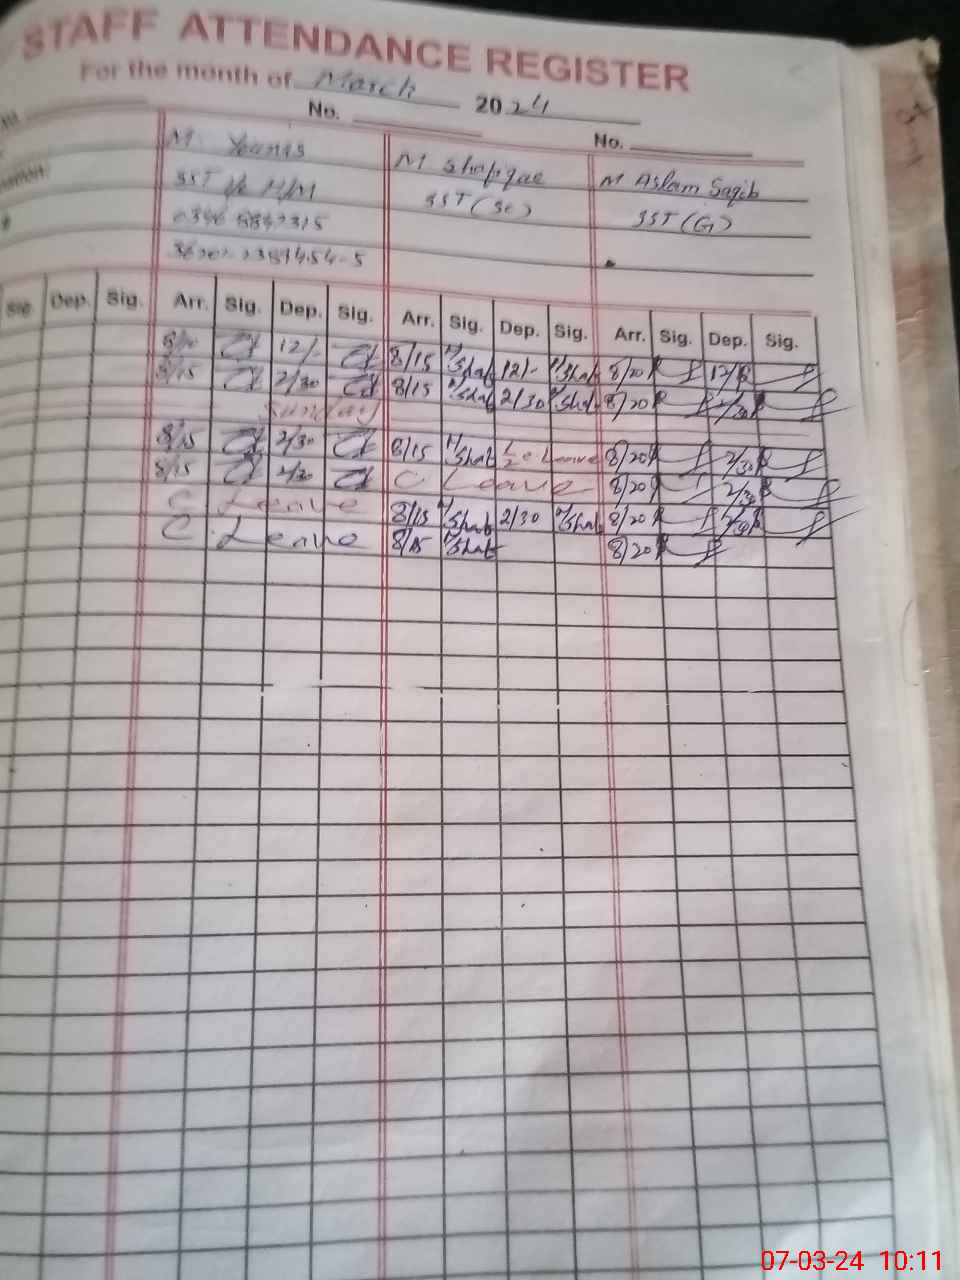 STAFF ATTENDANCE REGISTER
For the month of March 2024
No. No.
M. Younas M Shafique M Aslam Saqib
SST I/c H/M SST (Sc) SST (G)
Sig. Dep. Sig. Arr. Sig. Dep. Sig. Arr. Sig. Dep. Sig. Arr. Sig. Dep. Sig.
12/- 8/15 Shaf 12/- Shaf 8/20
8/15 2/30 8/15 Shaf 2/30 Shaf 8/20 2/30
Sunday
8/15 2/30 8/15 Shaf Leave 8/20 2/30
8/15 2/30 C Leave 8/20 2/30
C Leave 8/15 Shaf 2/30 Shaf 8/20 2/30
C. Leave 8/15 Shaf 8/20
07-03-24 10:11